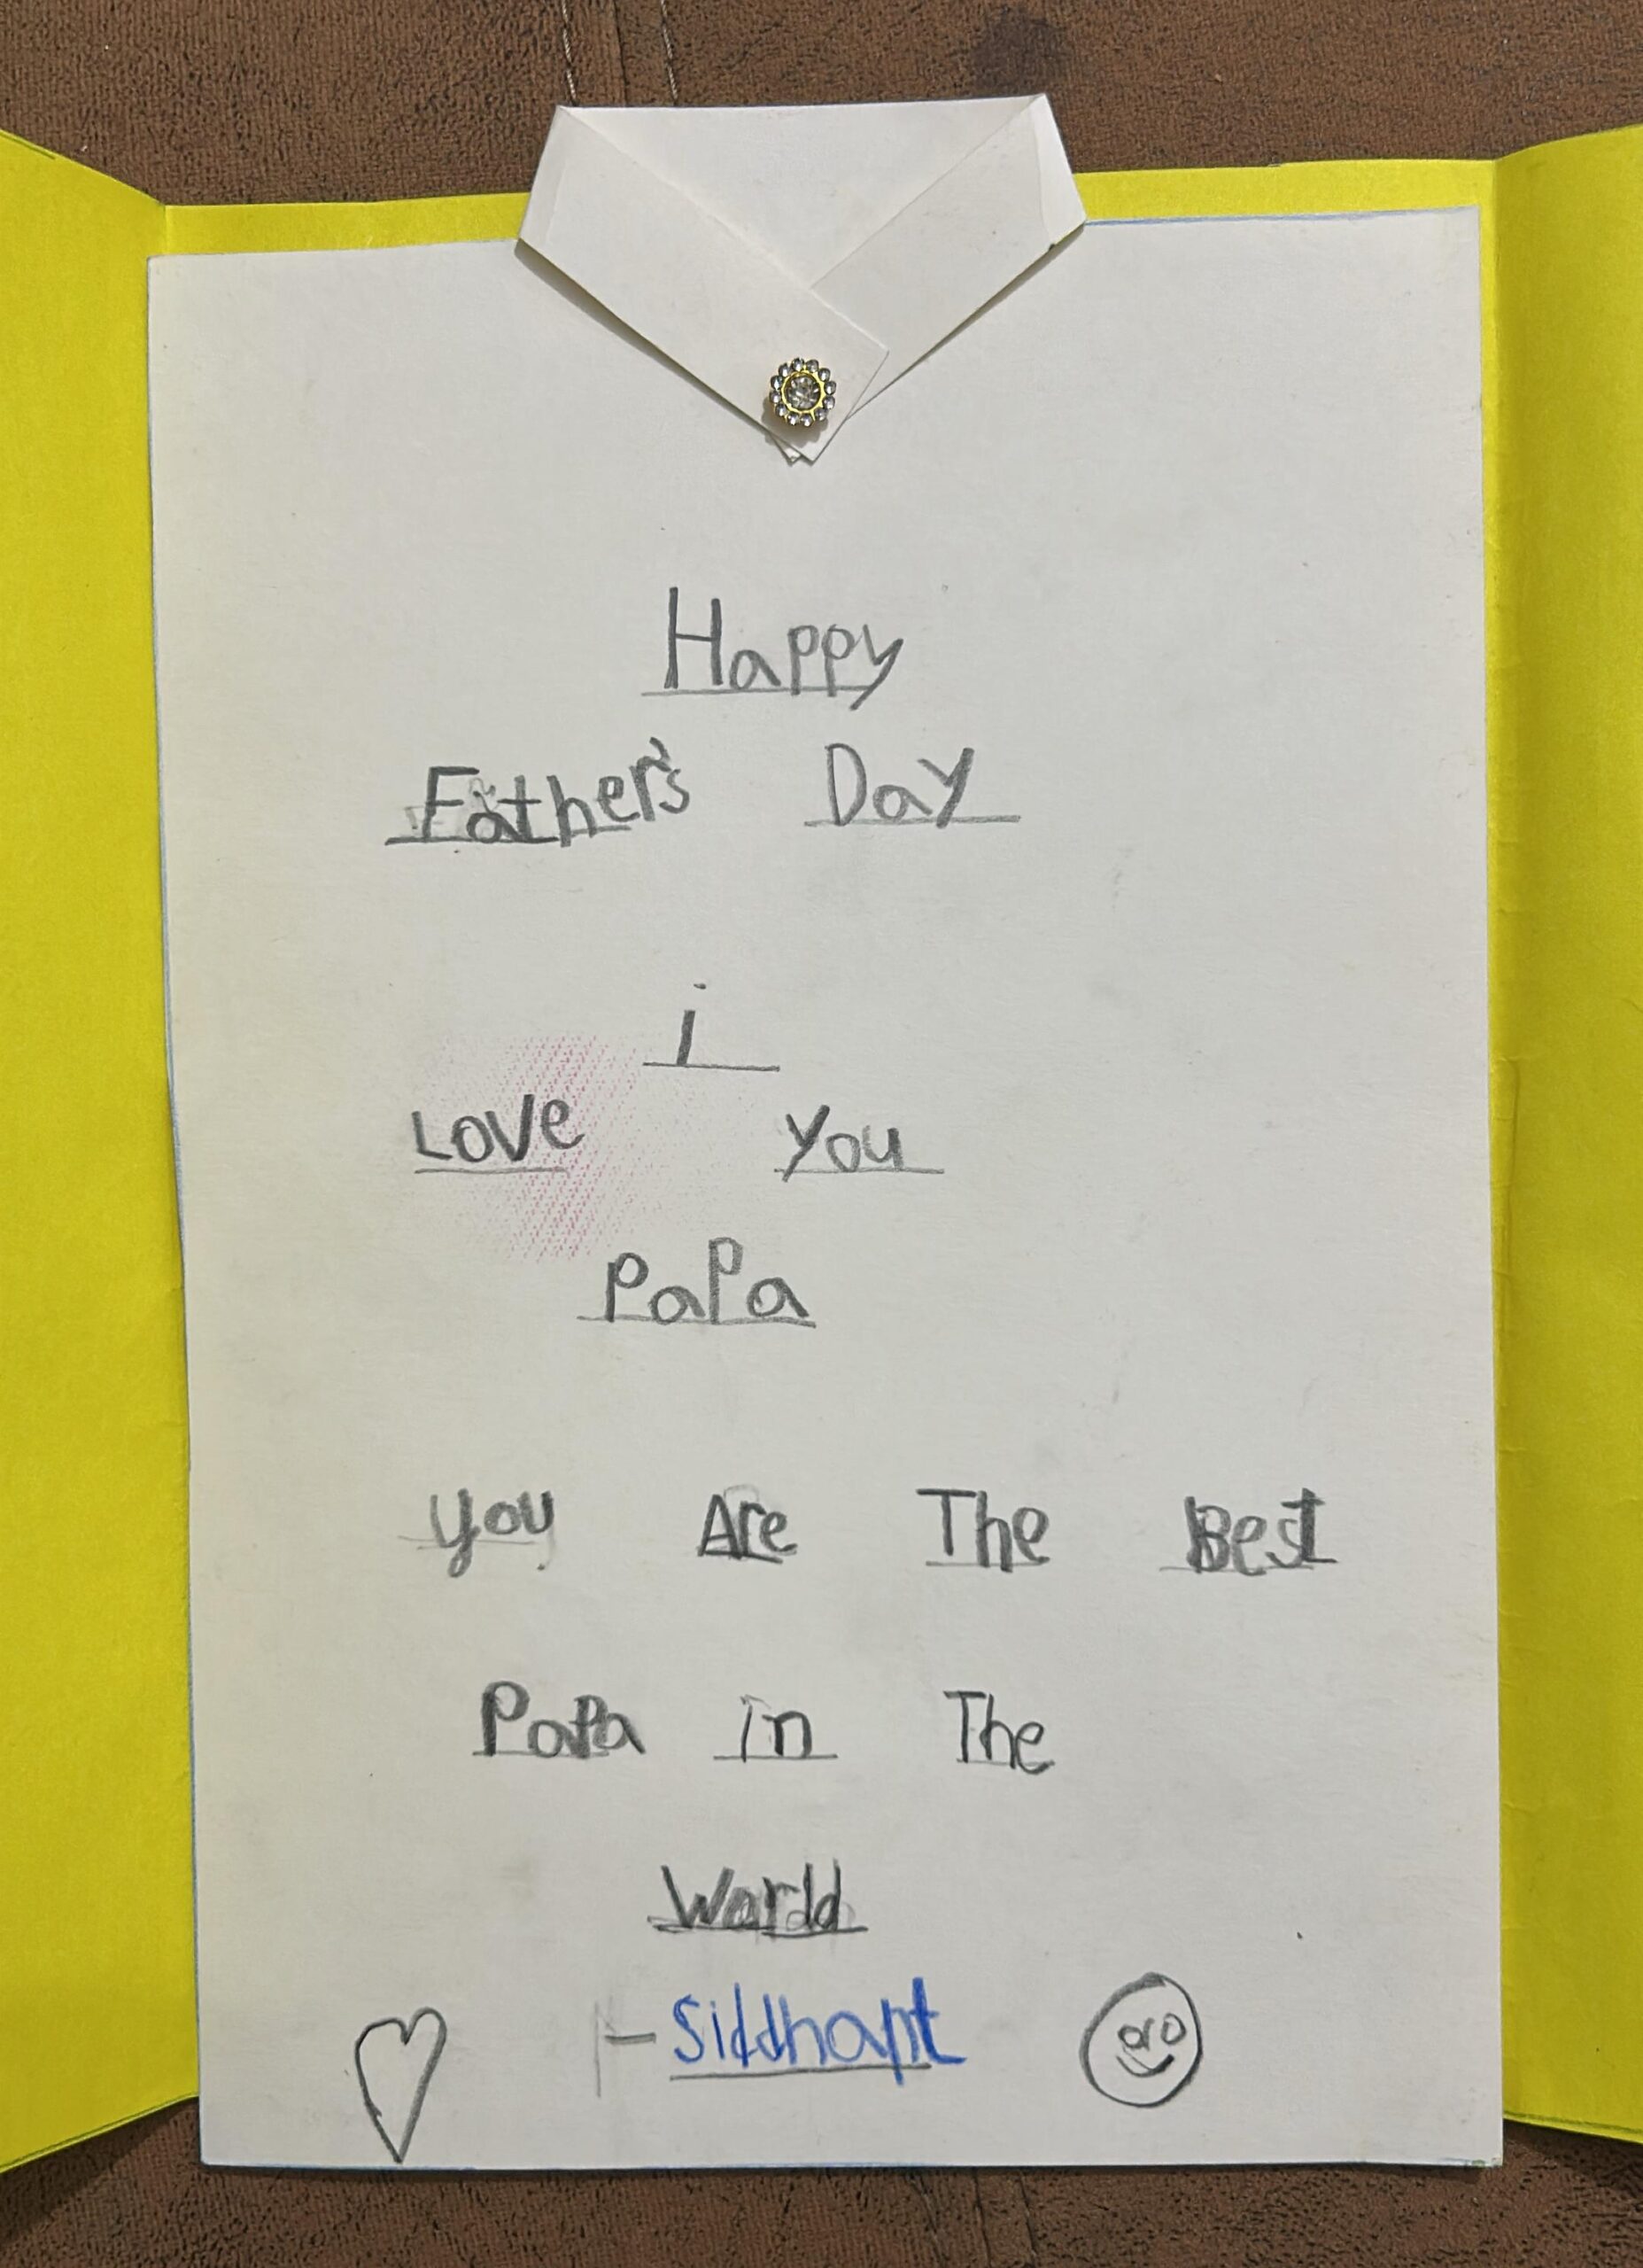 Happy
Father's Day
i
Love you
PaPa
you Are The Best
PaPa in The
World
- Siddhant